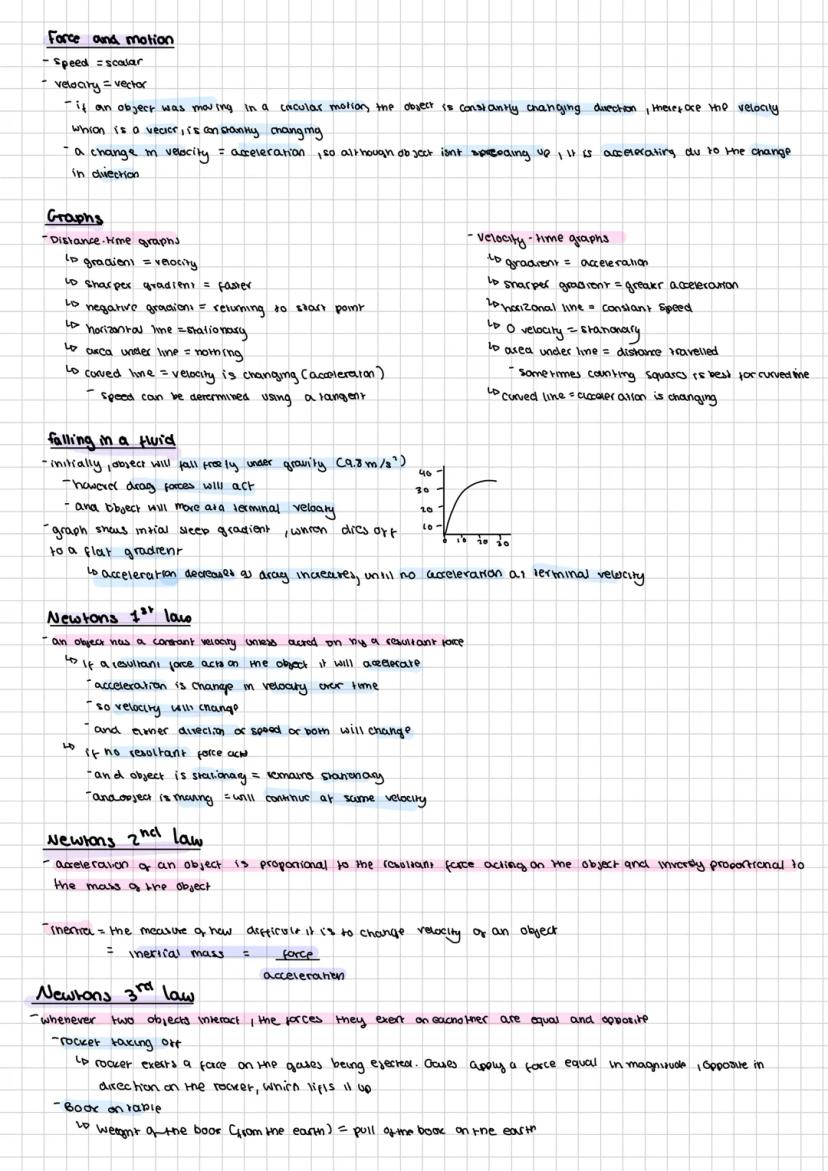 Force and motion
- speed = scalar
- velocity = vector
- if an object was moving in a circular motion, the object is constantly changing direction, therefore the velocity
which is a vector, is constantly changing
- a change in velocity = acceleration, so although object isnt speeding up, it is accelerating du to the change
in direction
Graphs
- Distance-time graphs
↳ gradient = velocity
↳ sharper gradient = faster
↳ negative gradient = returning to start point
↳ horizontal line = stationary
↳ area under line = nothing
↳ curved line = velocity is changing (acceleration)
- speed can be determined using a tangent
- Velocity-time graphs
↳ gradient = acceleration
↳ sharper gradient = greater acceleration
↳ horizonal line = constant speed
↳ 0 velocity = stationary
↳ area under line = distance travelled
- sometimes counting squares is best for curved line
↳ curved line = acceleration is changing
falling in a fluid
- initially, object will fall freely under gravity (9.8 m/s²)
- however drag forces will act
- and object will move at a terminal velocity
- graph shows intial steep gradient, which dies off
to a flat gradient
↳ acceleration decreases as drag increases, until no acceleration at terminal velocity
40
30
20
10
0 10 20 30
Newtons 1st law
- an object has a constant velocity unless acted on by a resultant force
↳ if a resultant force acts on the object it will accelerate
- acceleration is change in velocity over time
- so velocity will change
- and either direction or speed or both will change
↳ if no resultant force acts
- and object is stationary = remains stationary
- and object is moving = will continue at same velocity
Newtons 2nd law
- acceleration of an object is proportional to the resultant force acting on the object and inversly proportional to
the mass of the object
- inertia = the measure of how difficult it is to change velocity of an object
= inertial mass = force
acceleration
Newtons 3rd law
- whenever two objects interact, the forces they exert on eachother are equal and opposite
- rocket taking off
↳ rocket exerts a force on the gases being ejected. Gases apply a force equal in magnitude, opposite in
direction on the rocket, which lifts it up
- Book on table
↳ weight of the book (from the earth) = pull of the book on the earth